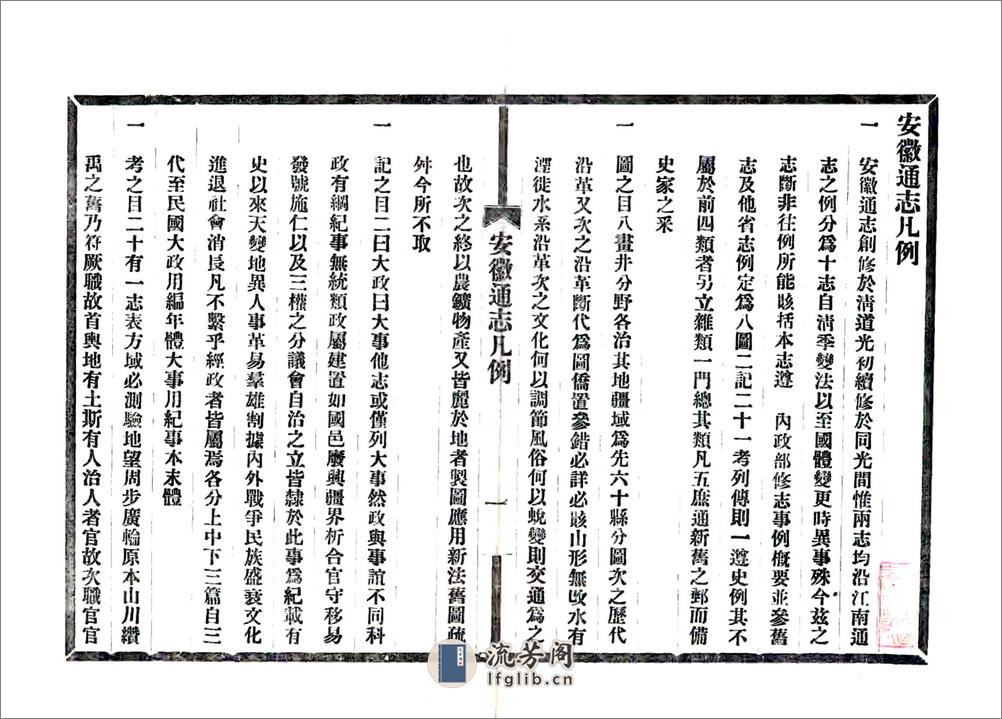 安徽通志凡例
一　安徽通志創修於清道光初續修於同光間惟兩志均沿江南通
志之例分爲十志自清季變法以至國體變更時異事殊今茲之
志斷非往例所能賅括本志遵　內政部修志事例概要並參舊
志及他省志例定爲八圖二記二十一考列傳則一遵史例其不
屬於前四類者另立雜類一門總其類凡五庶通新舊之郵而備
史家之釆
一　圖之目八畫井分野各治其地疆域爲先六十縣分圖次之歷代
沿革又次之沿革斷代爲圖僑置參錯必詳必賅山形無改水有
湮徙水系沿革次之文化何以調節風俗何以蛻變則交通爲之
安徽通志凡例
一
也故次之終以農鑛物產又皆麗於地者製圖應用新法舊圖疏
舛今所不取
一　記之目二曰大政曰大事他志或僅列大事然政與事誼不同科
政有綱紀事無統類政屬建置如國邑廢興疆界析合官守移易
發號施仁以及三權之分議會自治之立皆隸於此事爲紀載有
史以來天變地異人事革易羣雄割據內外戰爭民族盛衰文化
進退社會消長凡不繫乎經政者皆屬焉各分上中下三篇自三
代至民國大政用編年體大事用紀事本末體
一　考之目二十有一志表方域必測驗地望周步廣輪原本山川纘
禹之舊乃符厥職故首輿地有土斯有人治人者官故次職官官
流芳阁
lfglib.cn